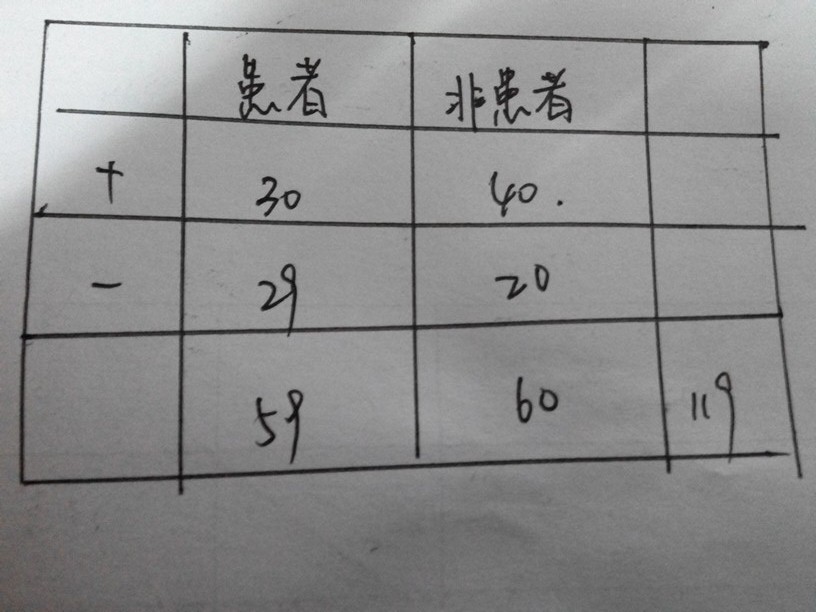 患者 非患者
+ 30 40.
- 29 20
59 60 119